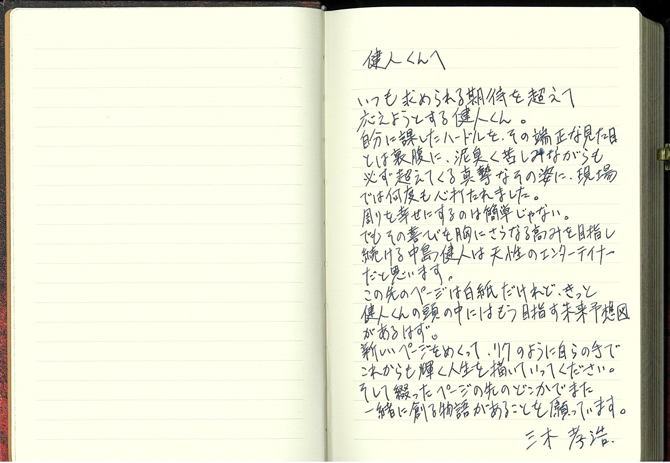 健人くんへ
いつも求められる期待を超えて
応えようとする健人くん。
自分に課したハードルを、その端正な見た目
とは裏腹に、泥臭く苦しみながらも
必ず超えてくる真摯なその姿に、現場
では何度も心打たれました。
周りを幸せにするのは簡単じゃない。
でもその喜びを胸にさらなる高みを目指し
続ける中島健人は天性のエンターテイナー
だと思います。
この先のページは白紙だけれど、きっと
健人くんの頭の中にはもう目指す未来予想図
があるはず。
新しいページをめくって、リクのように自らの手で
これからも輝く人生を描いていってください。
そして綴ったページの先のどこかでまた
一緒に創る物語があることを願っています。
三木孝浩.